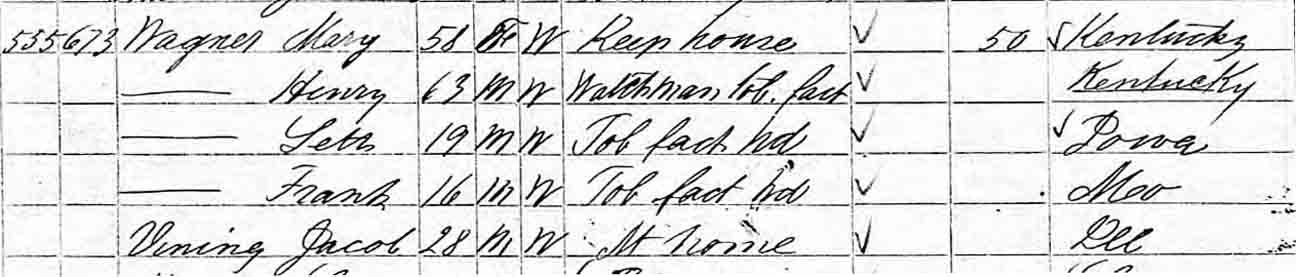 535 673 Wagner Mary 58 F W Keep house ✓ 50 ✓ Kentucky
—— Henry 63 M W Watchman tob. fact ✓ Kentucky
—— Seth 19 M W Tob fact hd ✓ ✓ Iowa
—— Frank 16 M W Tob fact hd ✓ Mo
Vining Jacob 28 M W At home ✓ Ill